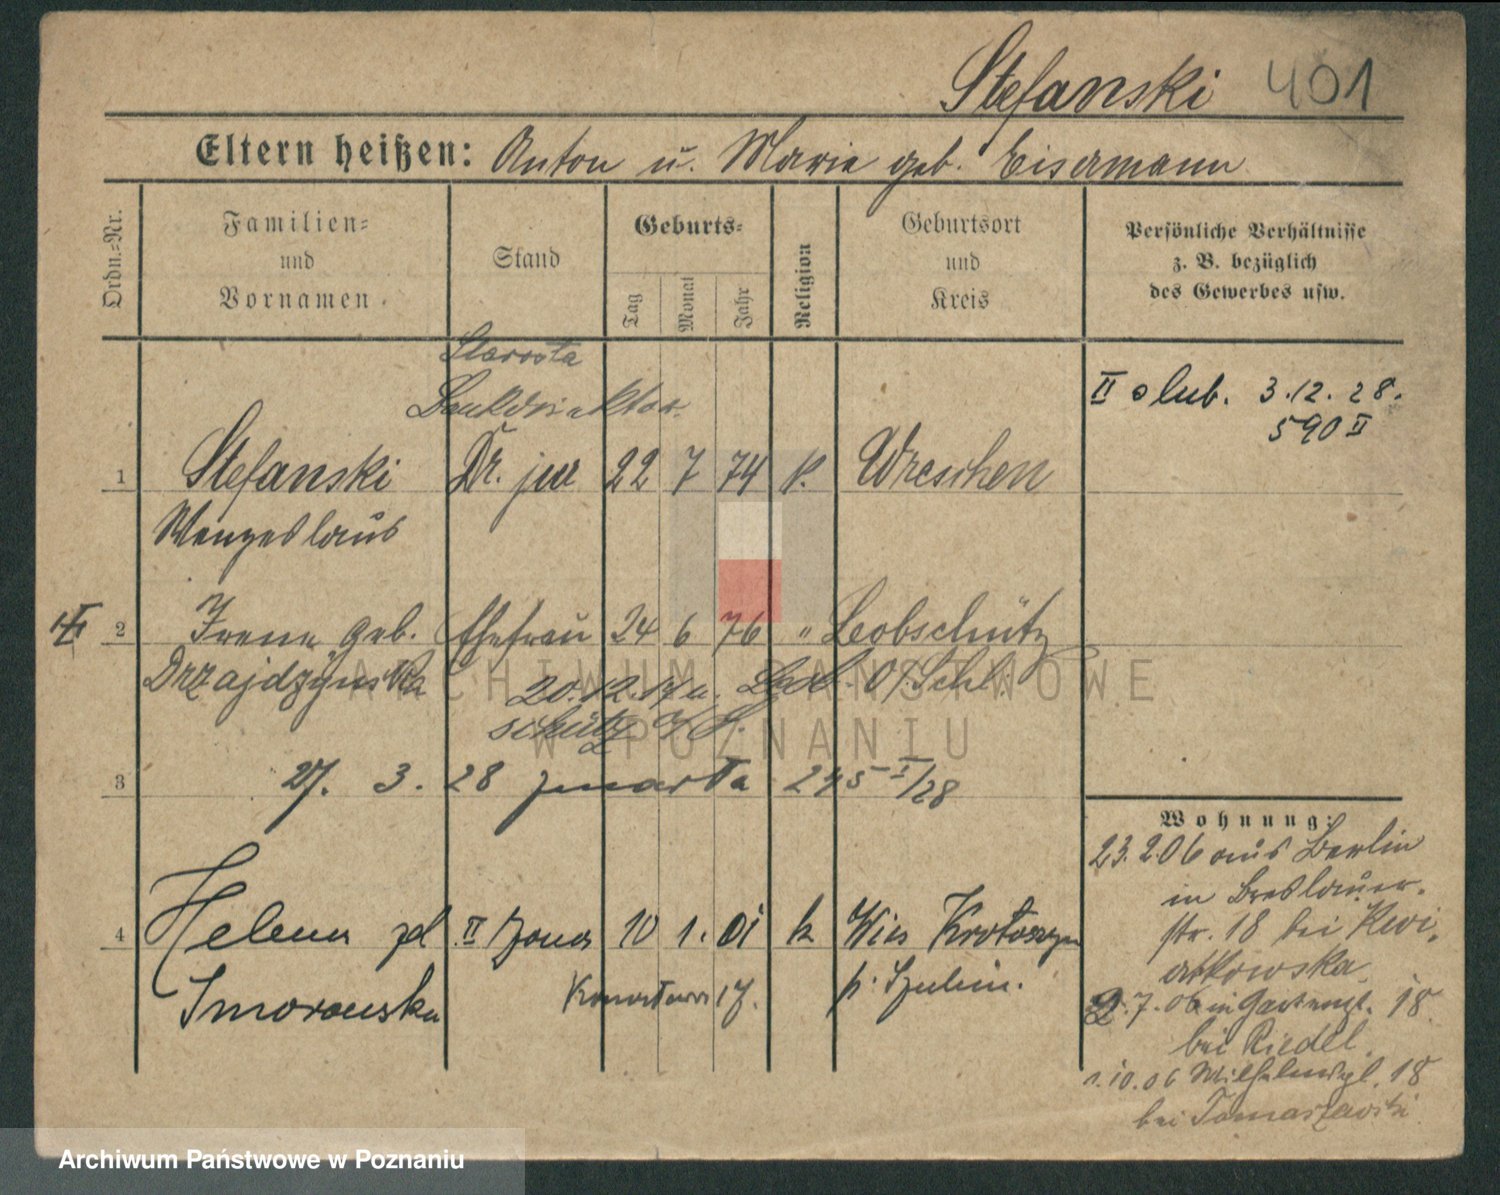 Stefanski 401
Eltern heißen: Anton u. Marie geb. Eisermann
Ordn.=Nr.
Familien=
und
Vornamen.
Stand
Geburts=
Tag
Monat
Jahr
Religion
Geburtsort
und
Kreis
Persönliche Verhältnisse
z. B. bezüglich
des Gewerbes usw.
Starosta
Bankdirektor.
II slub. 3.12.28.
590 II
1 Stefanski Dr. jur 22 7 74 k. Wreschen
Wenzeslaus
2 Irene geb. Ehefrau 24 6 76 " Leobschütz
Drzajdzynska
20.12.17 n.
schütz O/S.
ARCHIWUM PAŃSTWOWE
W POZNANIU
3 27. 3. 28 zmarła 245 I/28
Wohnung:
23.2.06 aus Berlin
in Breslauer-
str. 18 bei Kwi-
atkowska
4 Helena zd II żona 10 1. 01 k Wies Krotoszyn
Smorowska 17. p. Szubin.
2.7.06 in Gartenst. 18
bei Riedel.
1.10.06 Wilhelmspl. 18
bei Tomaszewski
Archiwum Państwowe w Poznaniu